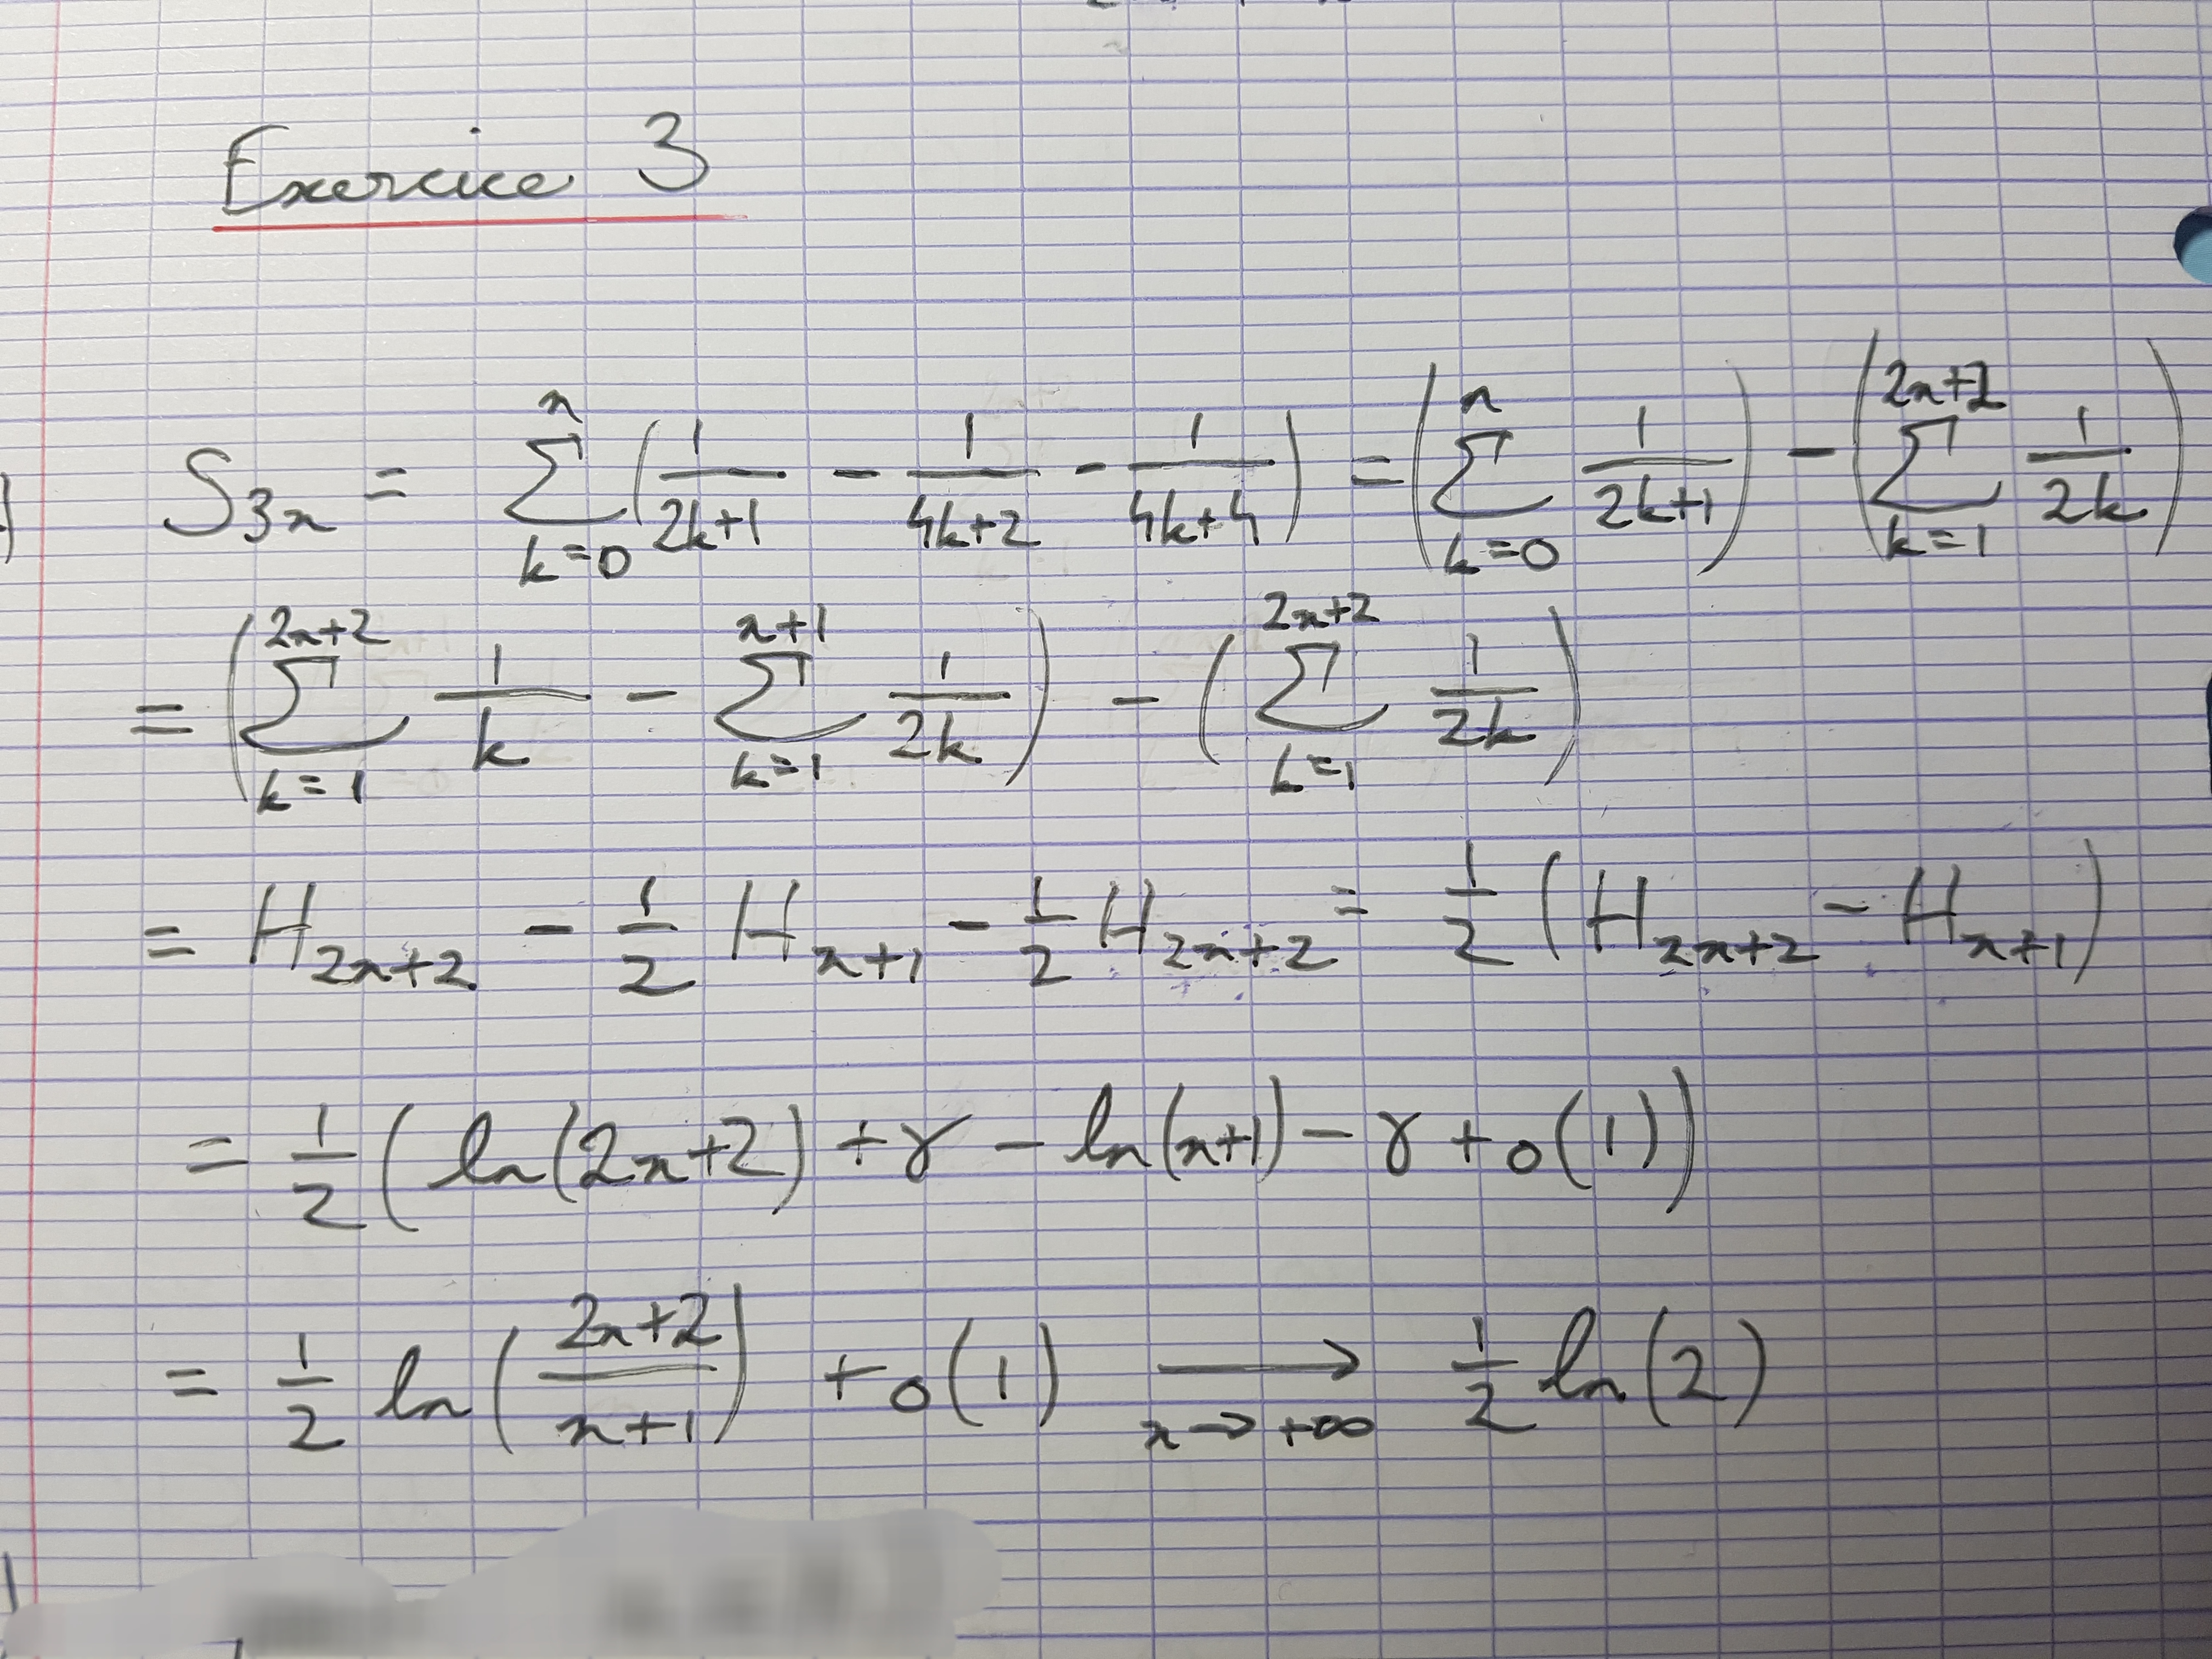 Exercice 3
S_{3n} = \sum_{k=0}^{n} \left( \frac{1}{2k+1} - \frac{1}{4k+2} - \frac{1}{4k+4} \right) = \left( \sum_{k=0}^{n} \frac{1}{2k+1} \right) - \left( \sum_{k=1}^{2n+2} \frac{1}{2k} \right)
= \left( \sum_{k=1}^{2n+2} \frac{1}{k} - \sum_{k=1}^{n+1} \frac{1}{2k} \right) - \left( \sum_{k=1}^{2n+2} \frac{1}{2k} \right)
= H_{2n+2} - \frac{1}{2} H_{n+1} - \frac{1}{2} H_{2n+2} = \frac{1}{2} \left( H_{2n+2} - H_{n+1} \right)
= \frac{1}{2} \left( \ln(2n+2) + γ - \ln(n+1) - γ + o(1) \right)
= \frac{1}{2} \ln \left( \frac{2n+2}{n+1} \right) + o(1) \xrightarrow[n \to +\infty]{} \frac{1}{2} \ln(2)